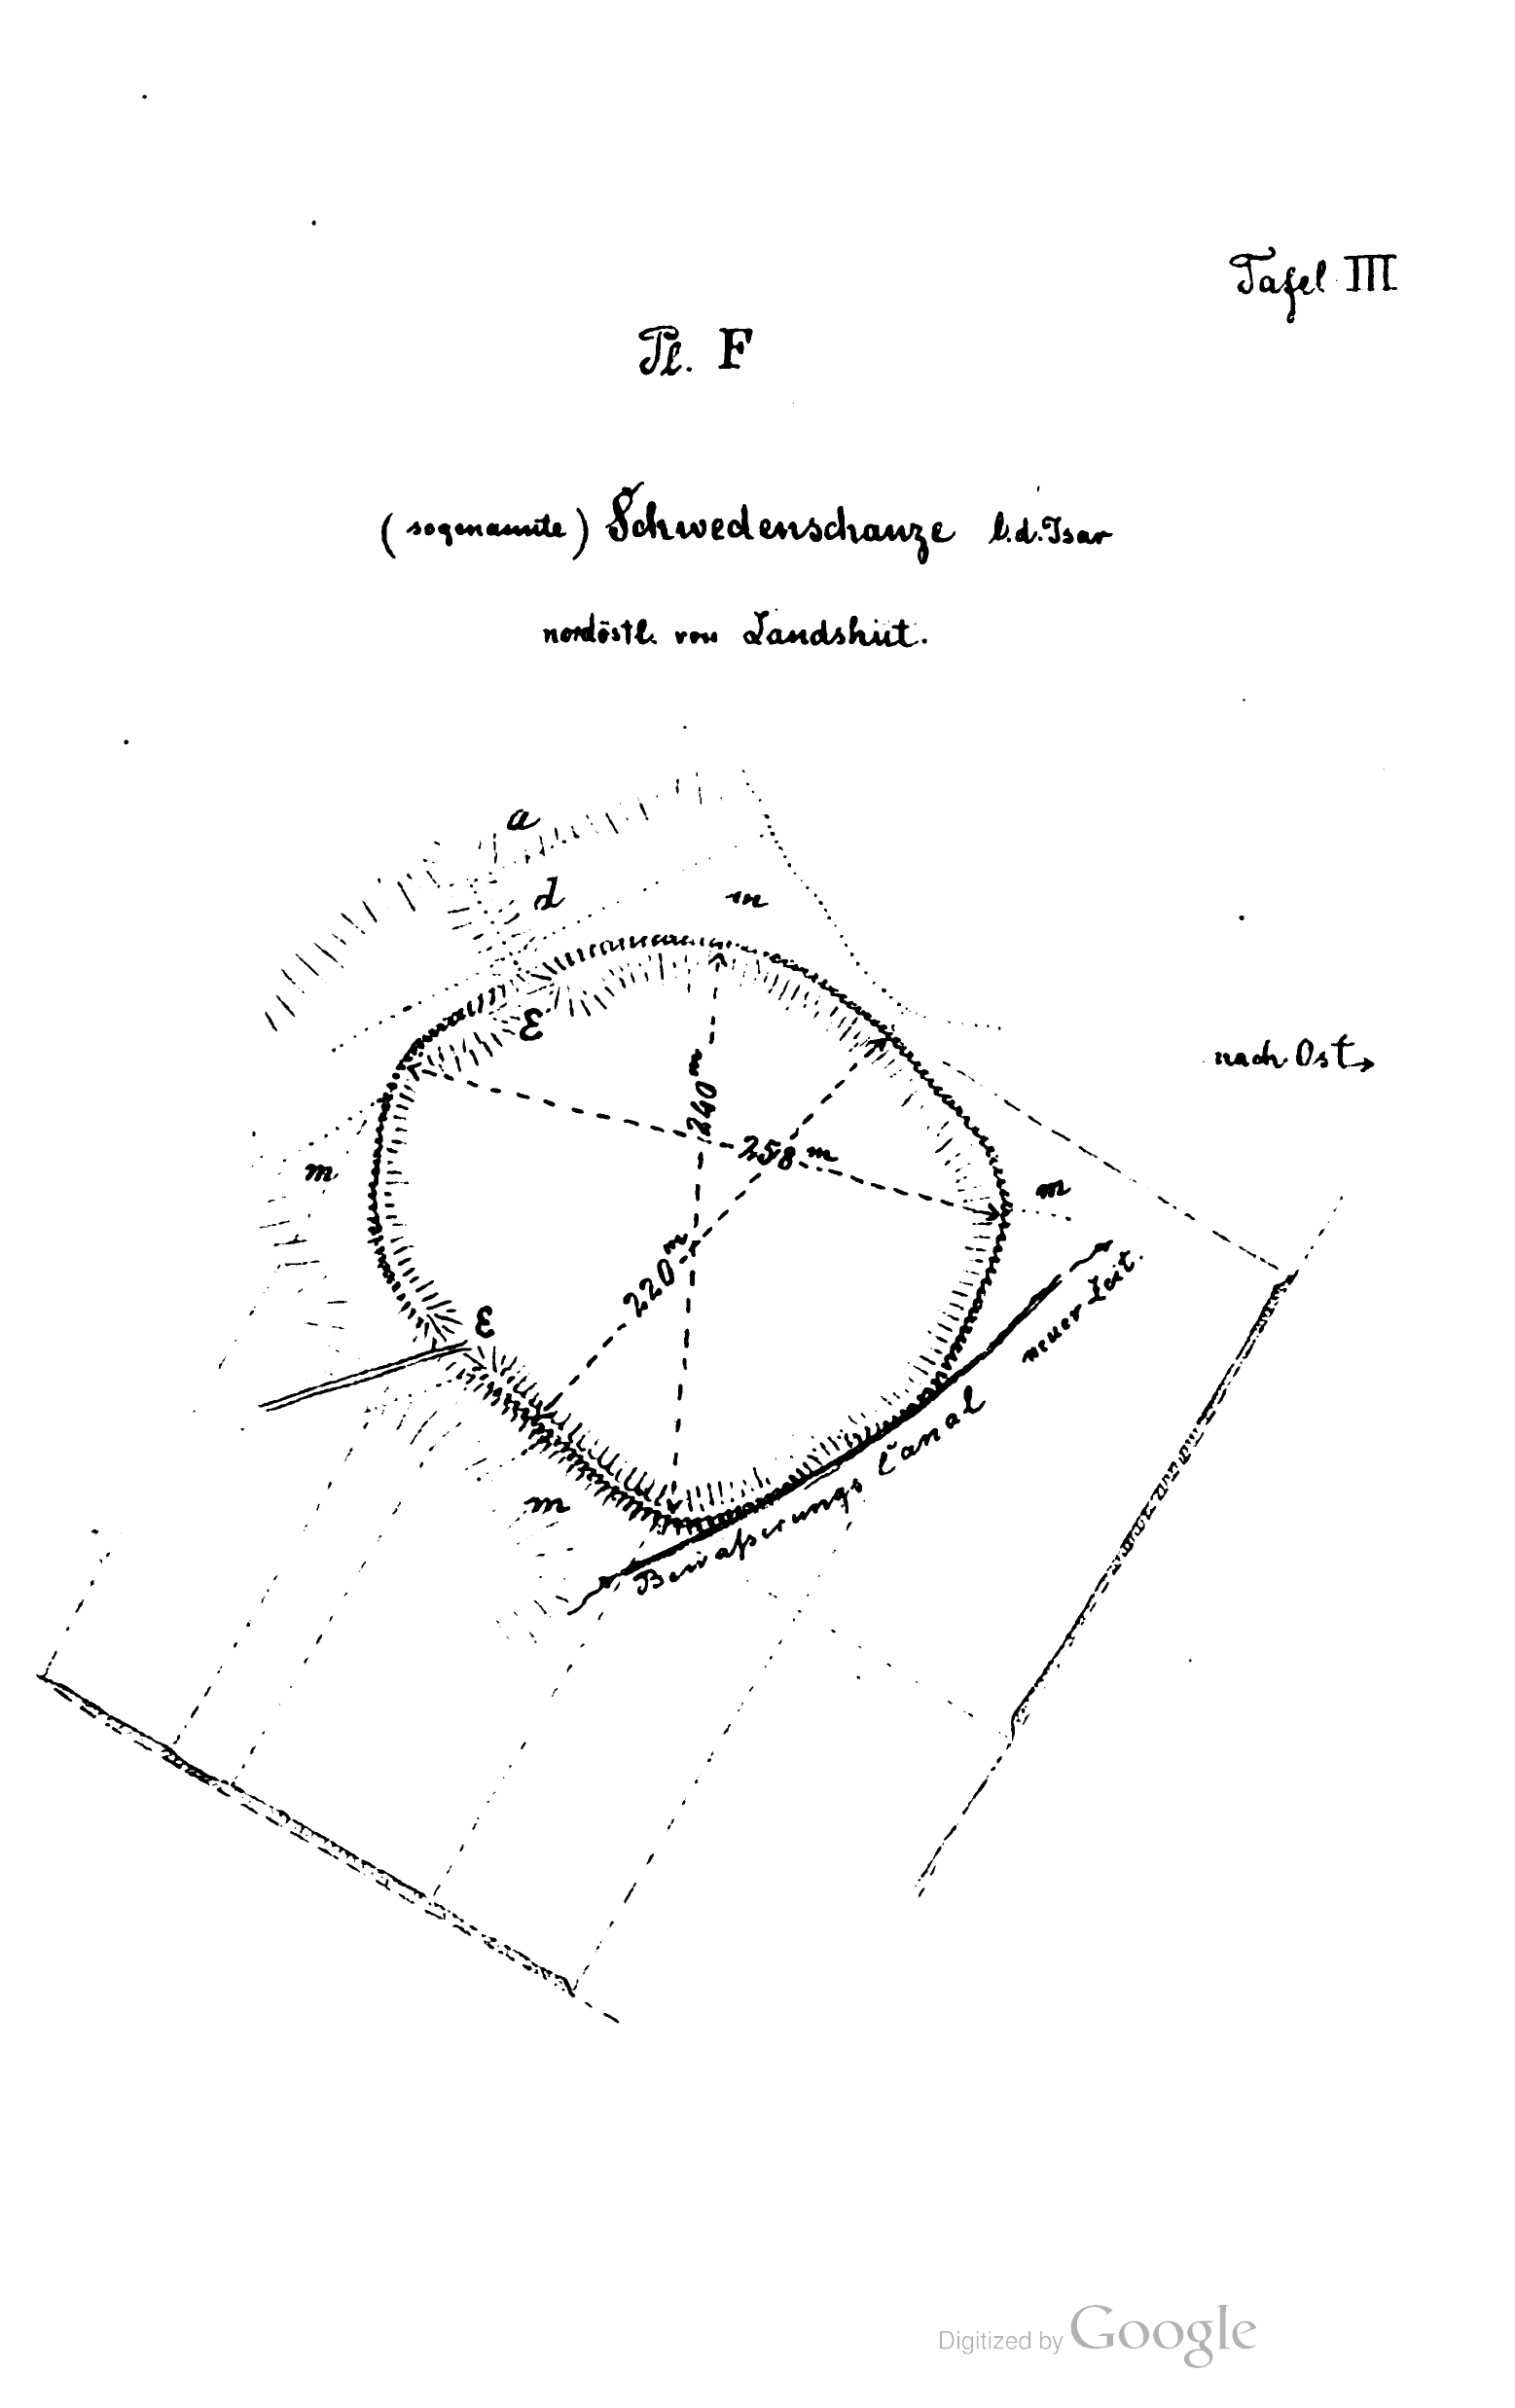 Tafel III
Pl. F
(sogenannte) Schwedenschanze b.d. Isar
nordöstl. von Landshut.
a
d
m
E
nach Ost
240 m
258 m
m
m
220 m
E
neuer Zeit.
Bewässerungs Canal
m
Digitized by Google